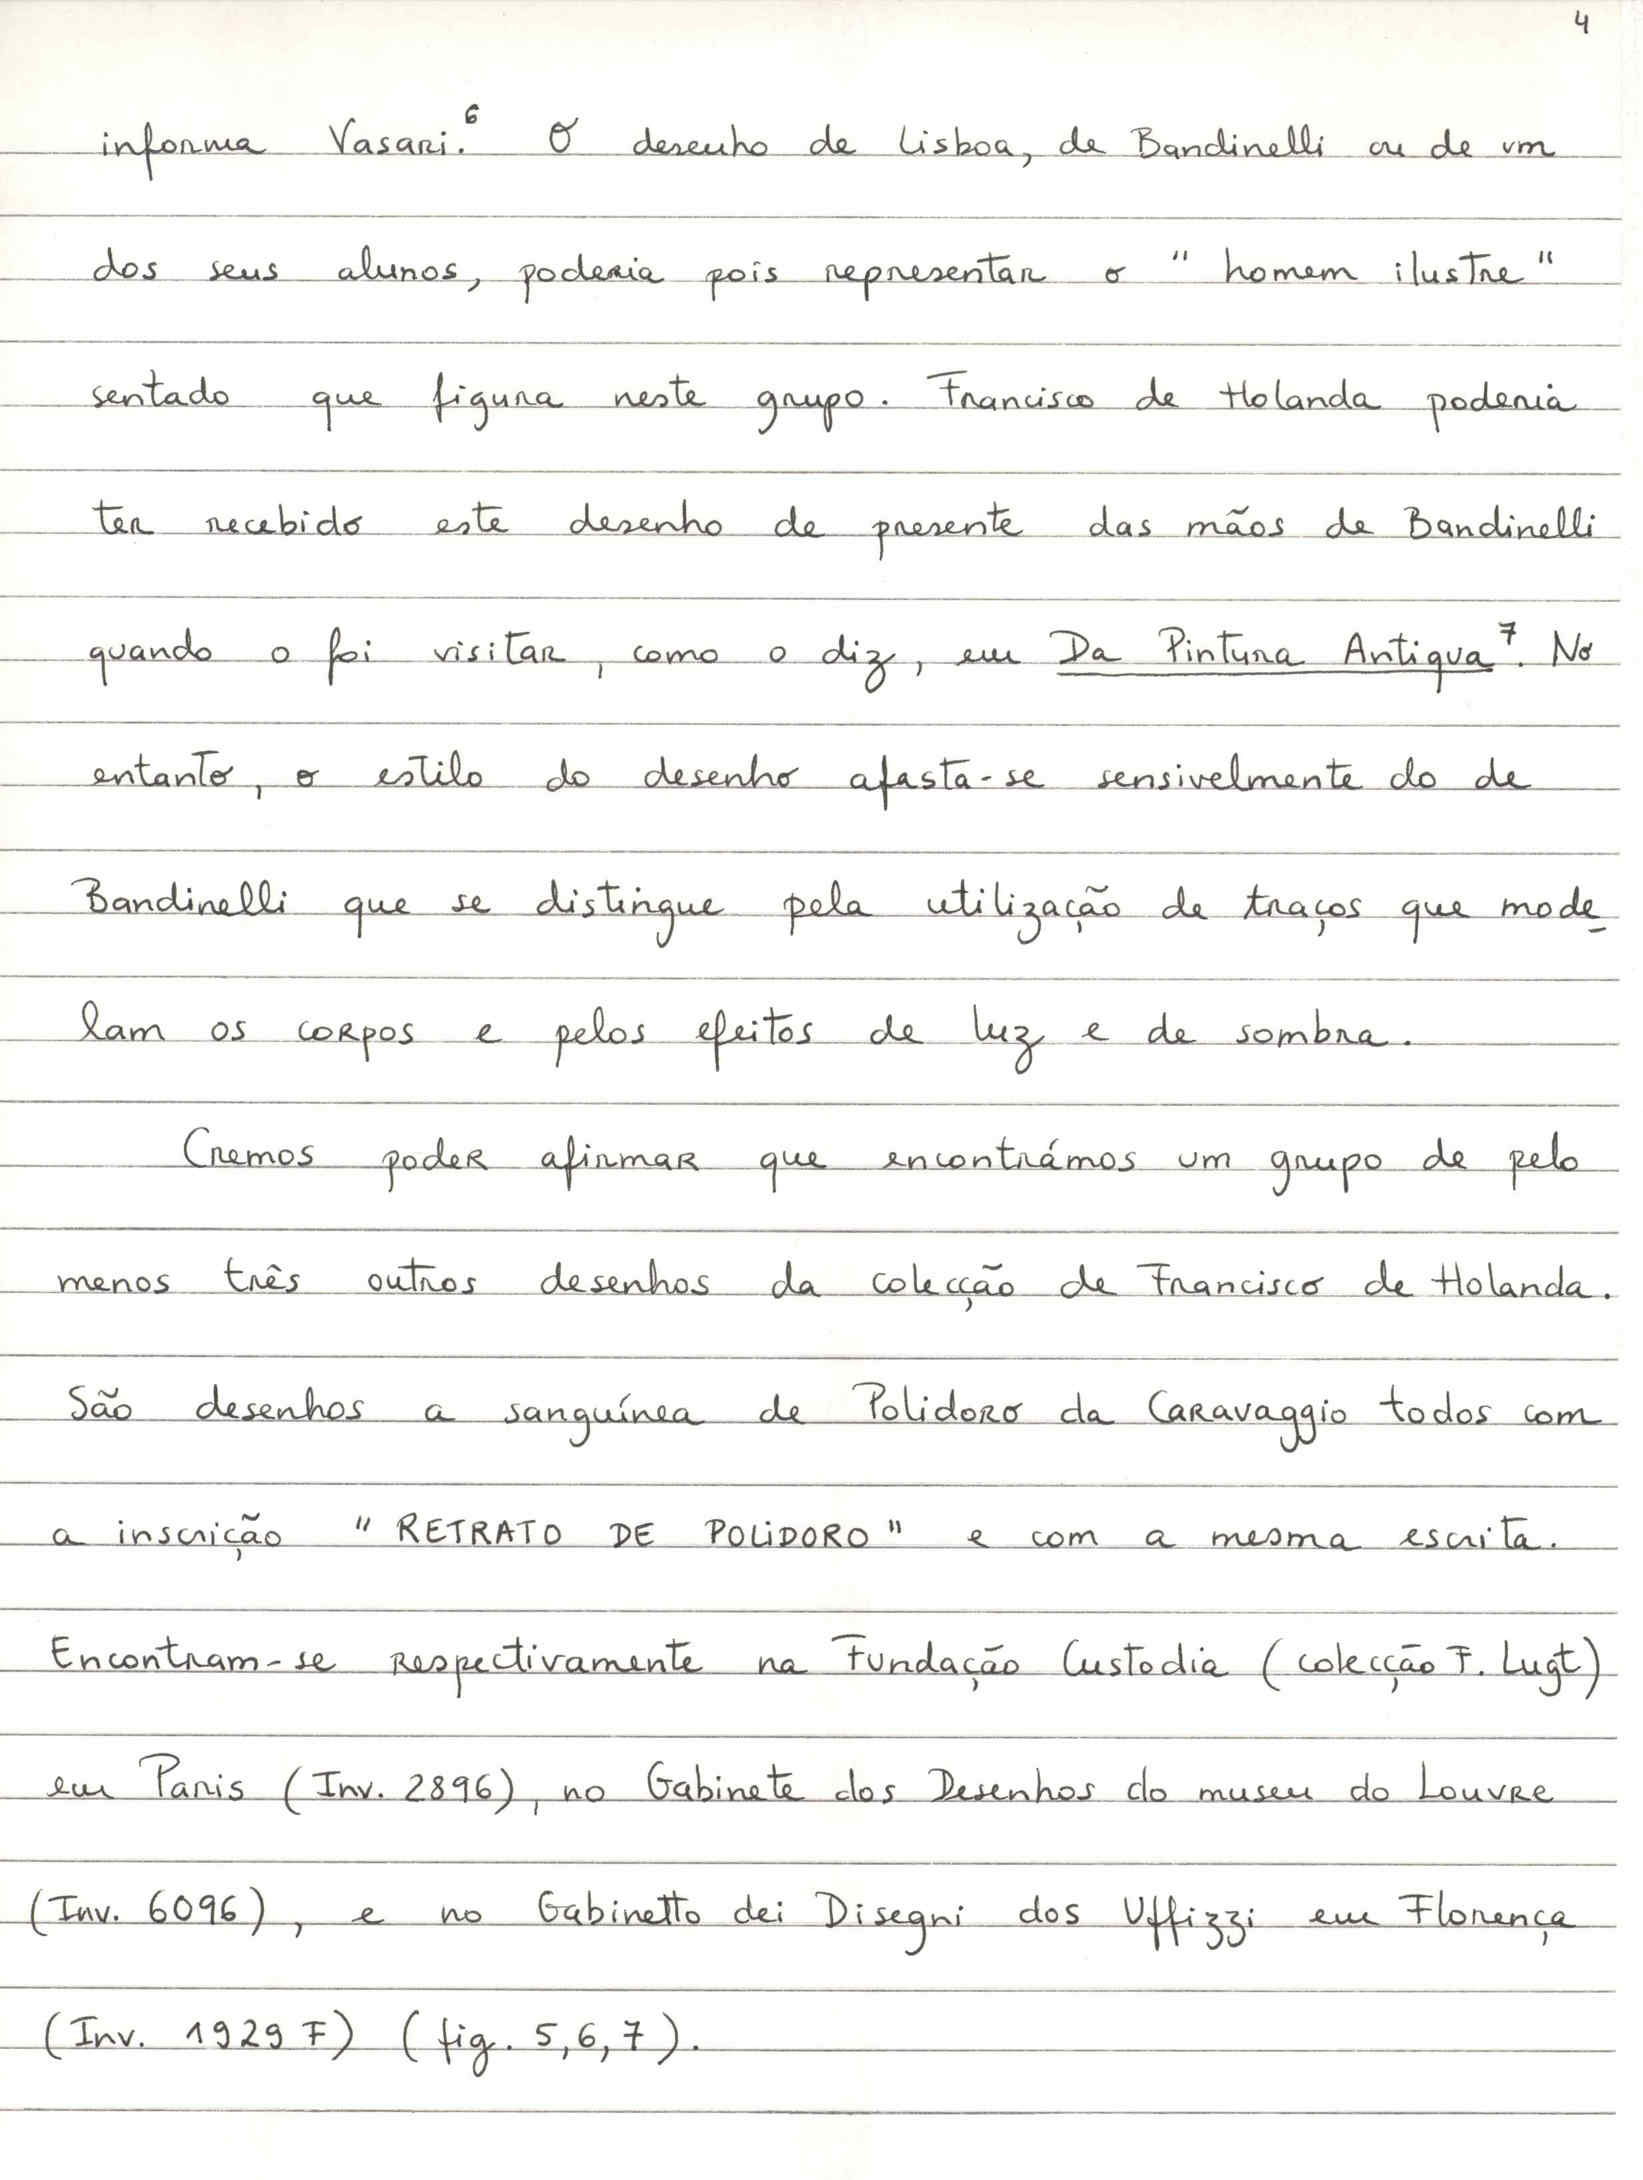 4
informa Vasari.⁶ O desenho de Lisboa, de Bandinelli ou de um
dos seus alunos, poderia pois representar o "homem ilustre"
sentado que figura neste grupo. Francisco de Holanda poderia
ter recebido este desenho de presente das mãos de Bandinelli
quando o foi visitar, como o diz, em Da Pintura Antiqua⁷. No
entanto, o estilo do desenho afasta-se sensivelmente do de
Bandinelli que se distingue pela utilização de traços que mode-
lam os corpos e pelos efeitos de luz e de sombra.
Cremos poder afirmar que encontrámos um grupo de pelo
menos três outros desenhos da colecção de Francisco de Holanda.
São desenhos a sanguínea de Polidoro da Caravaggio todos com
a inscrição "RETRATO DE POLIDORO" e com a mesma escrita.
Encontram-se respectivamente na Fundação Custodia (colecção F. Lugt)
em Paris (Inv. 2896), no Gabinete dos Desenhos do museu do Louvre
(Inv. 6096), e no Gabinetto dei Disegni dos Uffizzi em Florença
(Inv. 1929 F) (fig. 5,6,7).